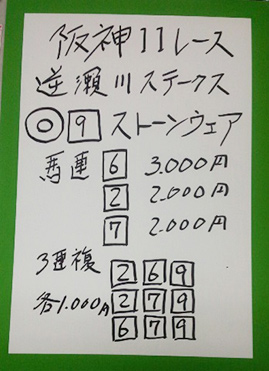 阪神11レース
逆瀬川ステークス
◎ 9 ストーンウェア
馬連 6 3.000円
2 2.000円
7 2.000円
3連複 2 6 9
各1.000円 2 7 9
6 7 9